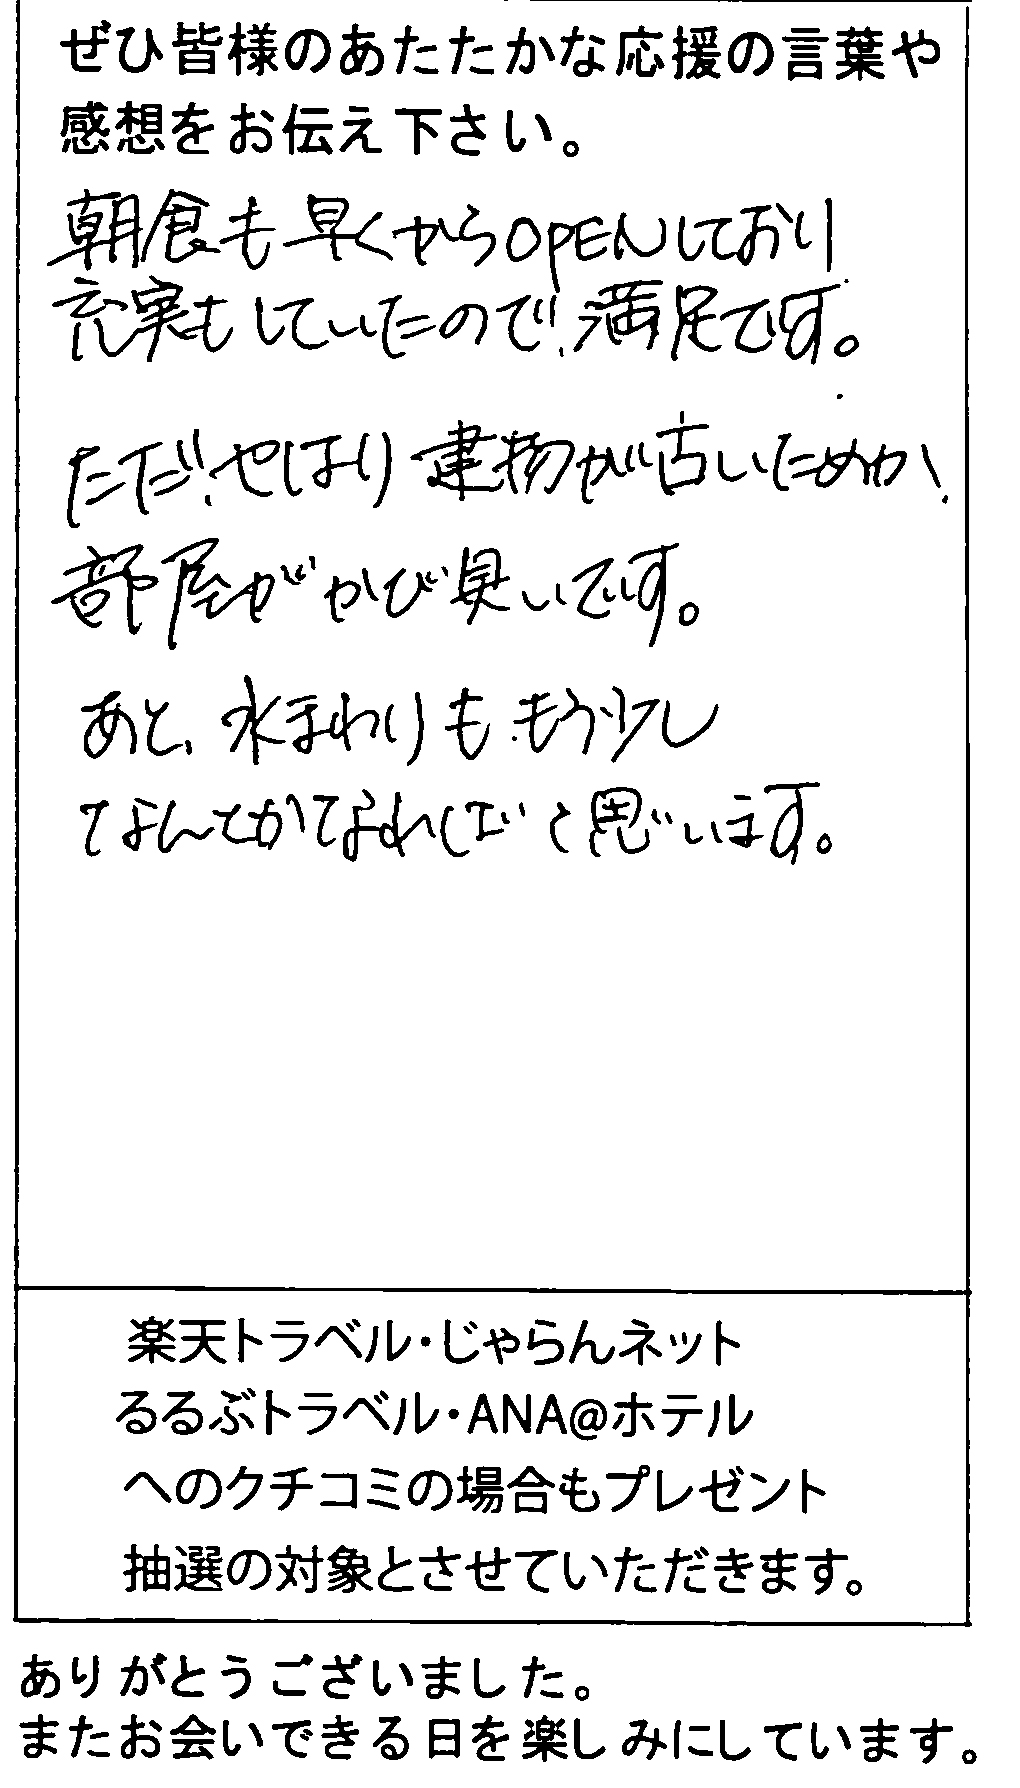 ぜひ皆様のあたたかな応援の言葉や
感想をお伝え下さい。
朝食も早くからOPENしており
充実もしていたので、満足です。
ただ、やはり建物が古いためか、
部屋がかび臭いです。
あと、水まわりももう少し
なんとかなればと思います。
楽天トラベル・じゃらんネット
るるぶトラベル・ANA@ホテル
へのクチコミの場合もプレゼント
抽選の対象とさせていただきます。
ありがとうございました。
またお会いできる日を楽しみにしています。